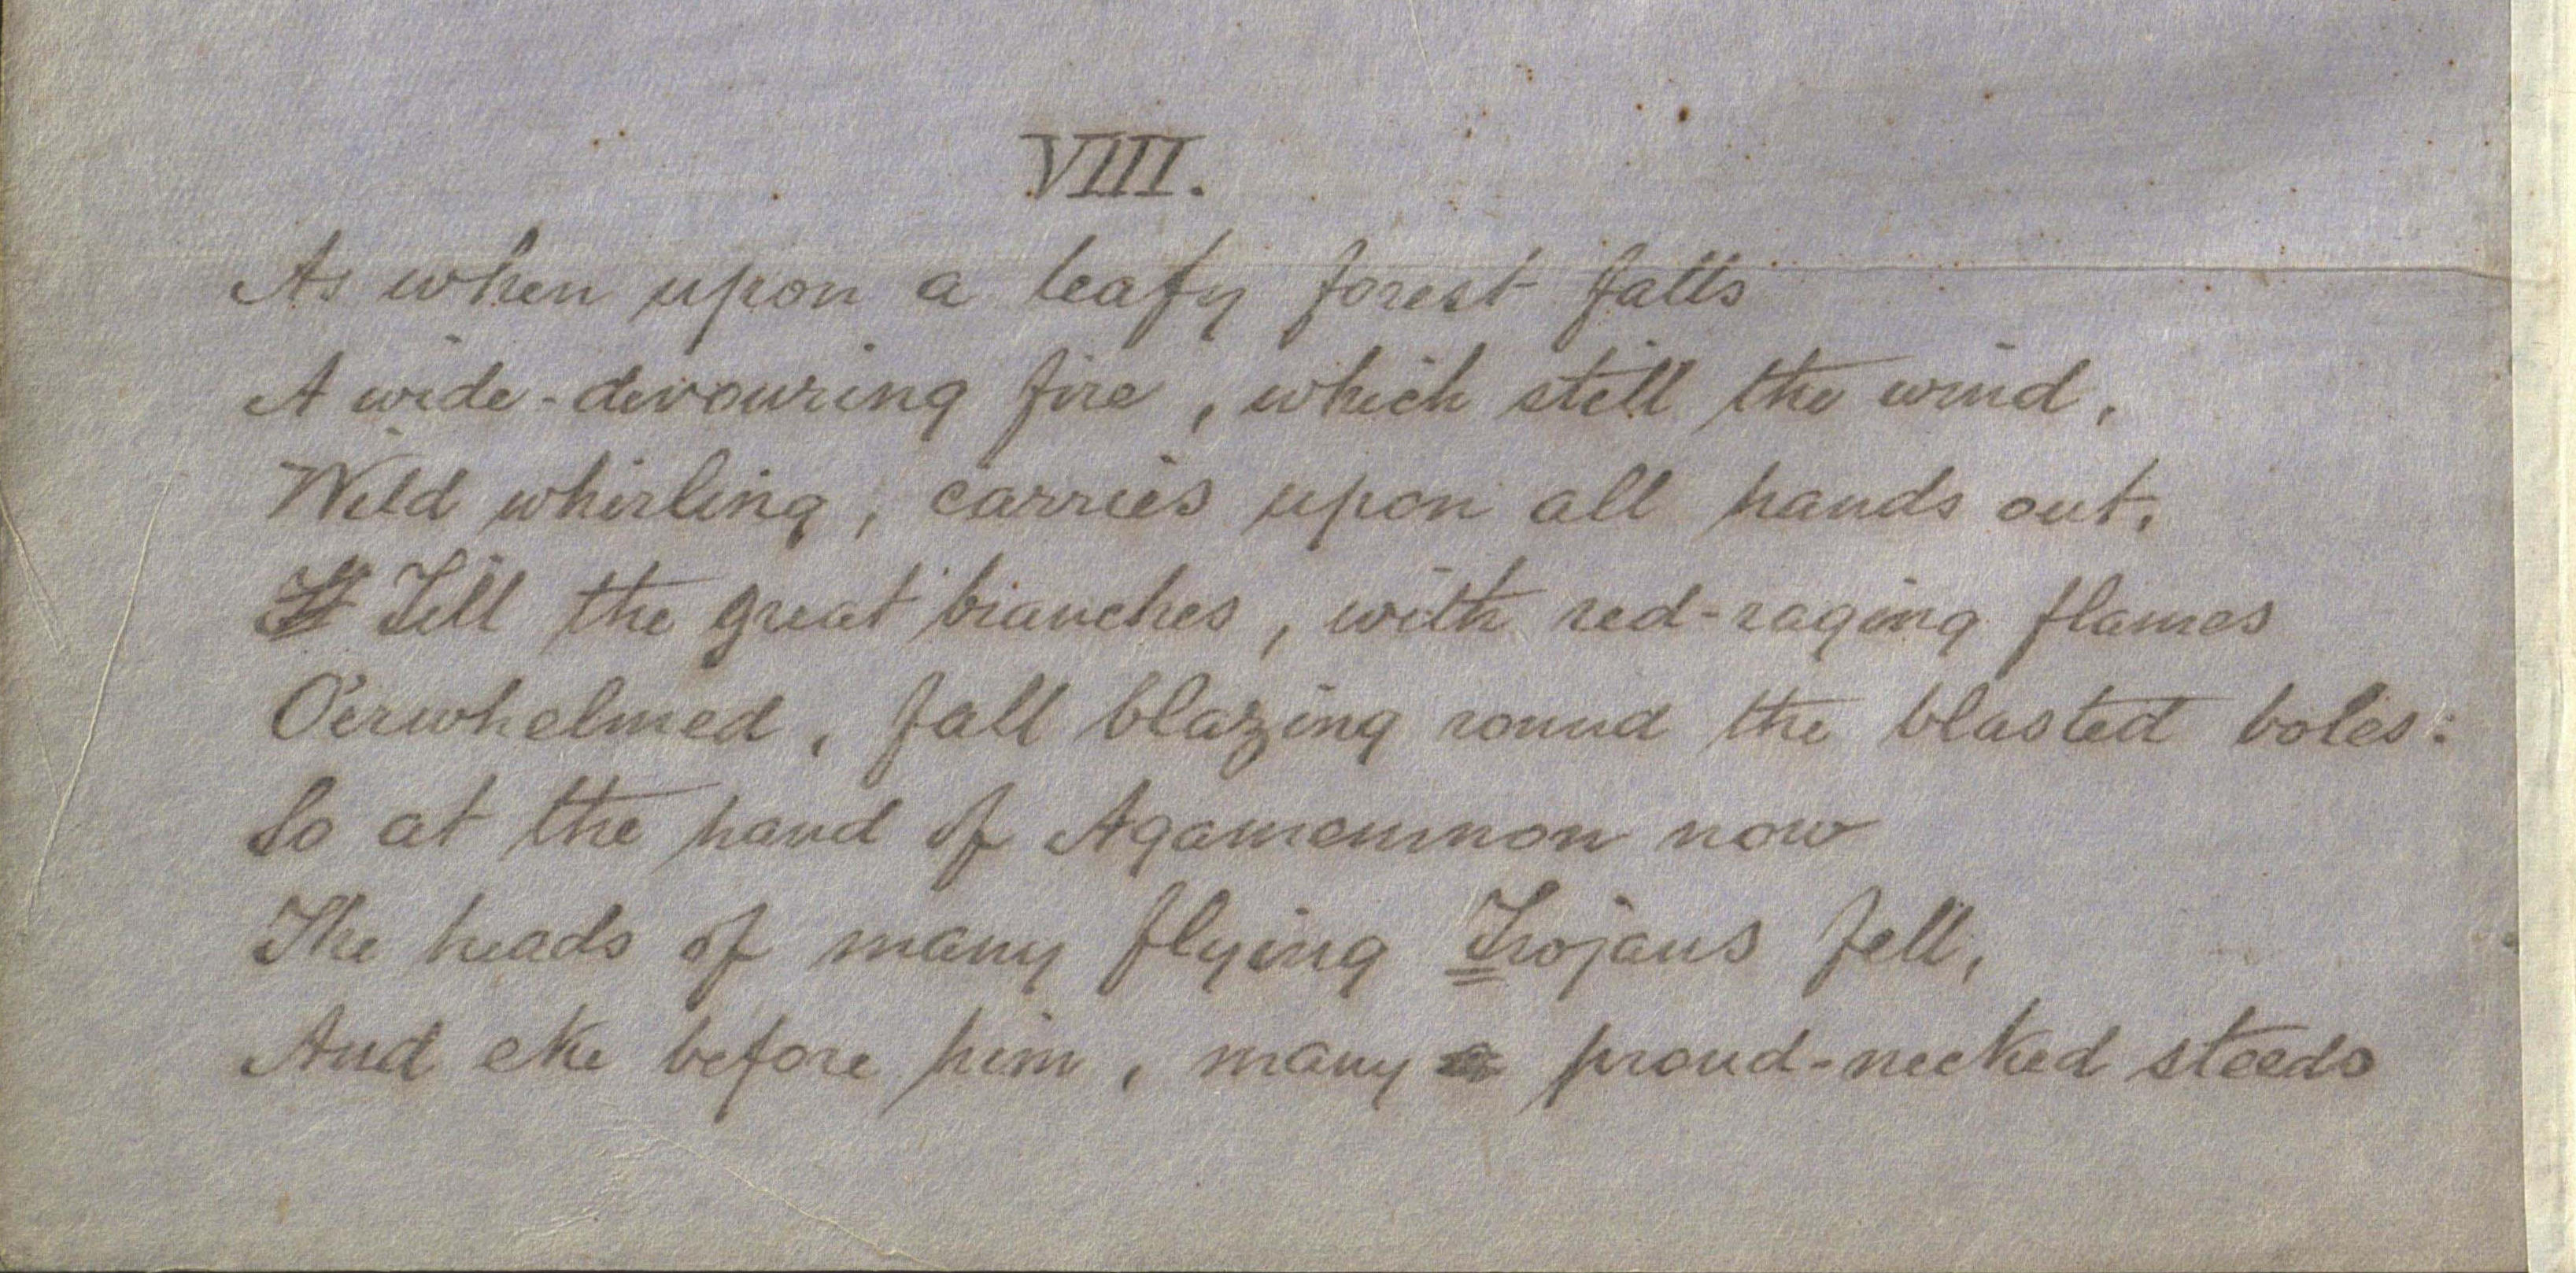 VIII.
As when upon a leafy forest falls
A wide-devouring fire, which still the wind,
Wild whirling, carries upon all hands out,
Till the great branches, with red-raging flames
O'erwhelmed, fall blazing round the blasted boles:
So at the hand of Agamemnon now
The heads of many flying Trojans fell,
And eke before him, many proud-necked steeds